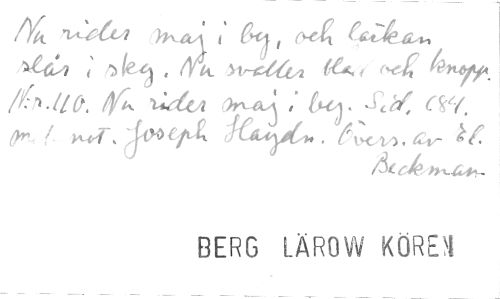 Nu rider maj i by, och lärkan
slår i sky. Nu svaller blad och knopp.
N:r. 110. Nu rider maj i by. Sid. 184.
not. Joseph Haydn. Övers. av El.
Beckman
BERG LÄROW KÖREN